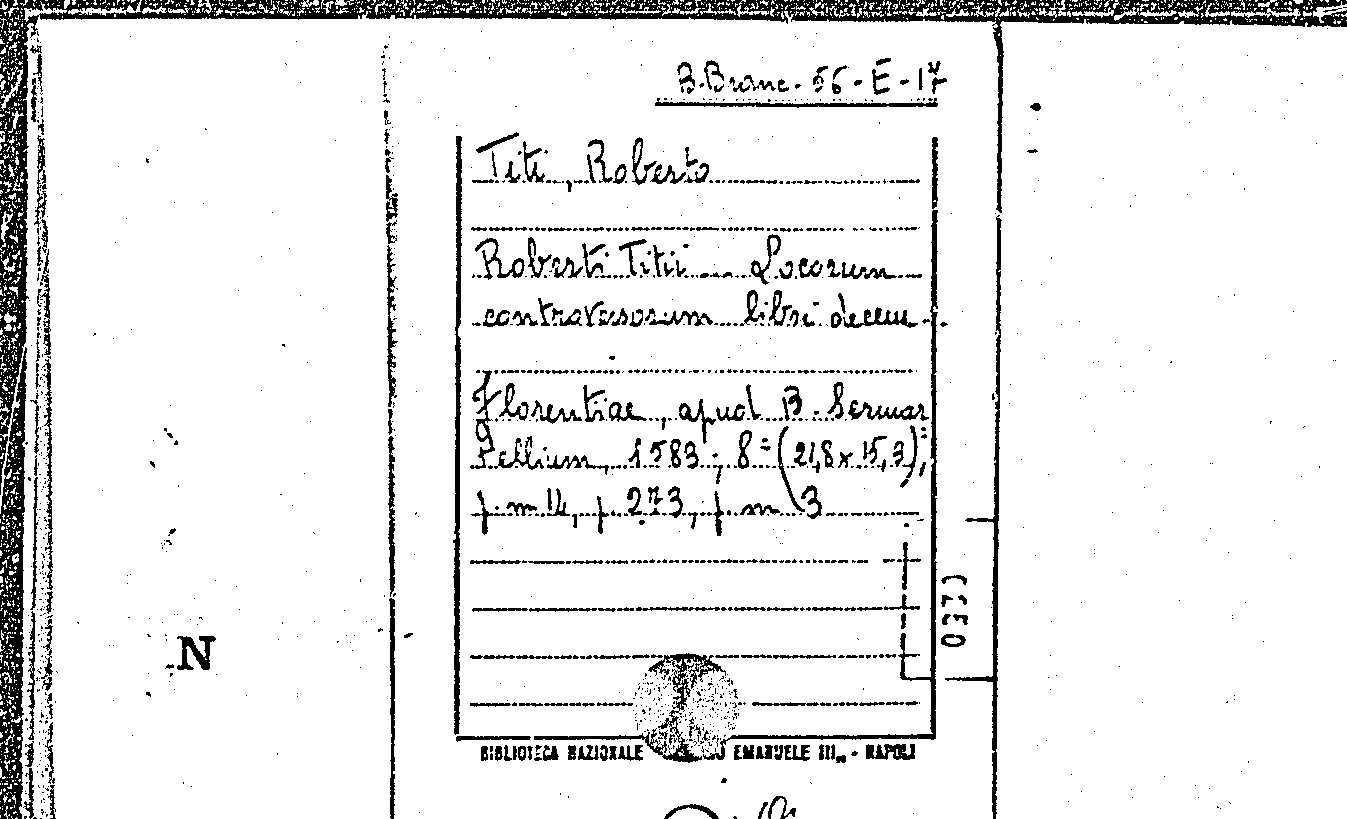 B. Branc. 56-E-17
Titi, Roberto
Roberti Titii ... Locorum
controversorum libri decem...
Florentiae, apud B. Sermar
tellium, 1583; 8º (21,8x15,3);
p. n. 14, p. 273, p. n. 3
N
BIBLIOTECA NAZIONALE EMANUELE III - NAPOLI